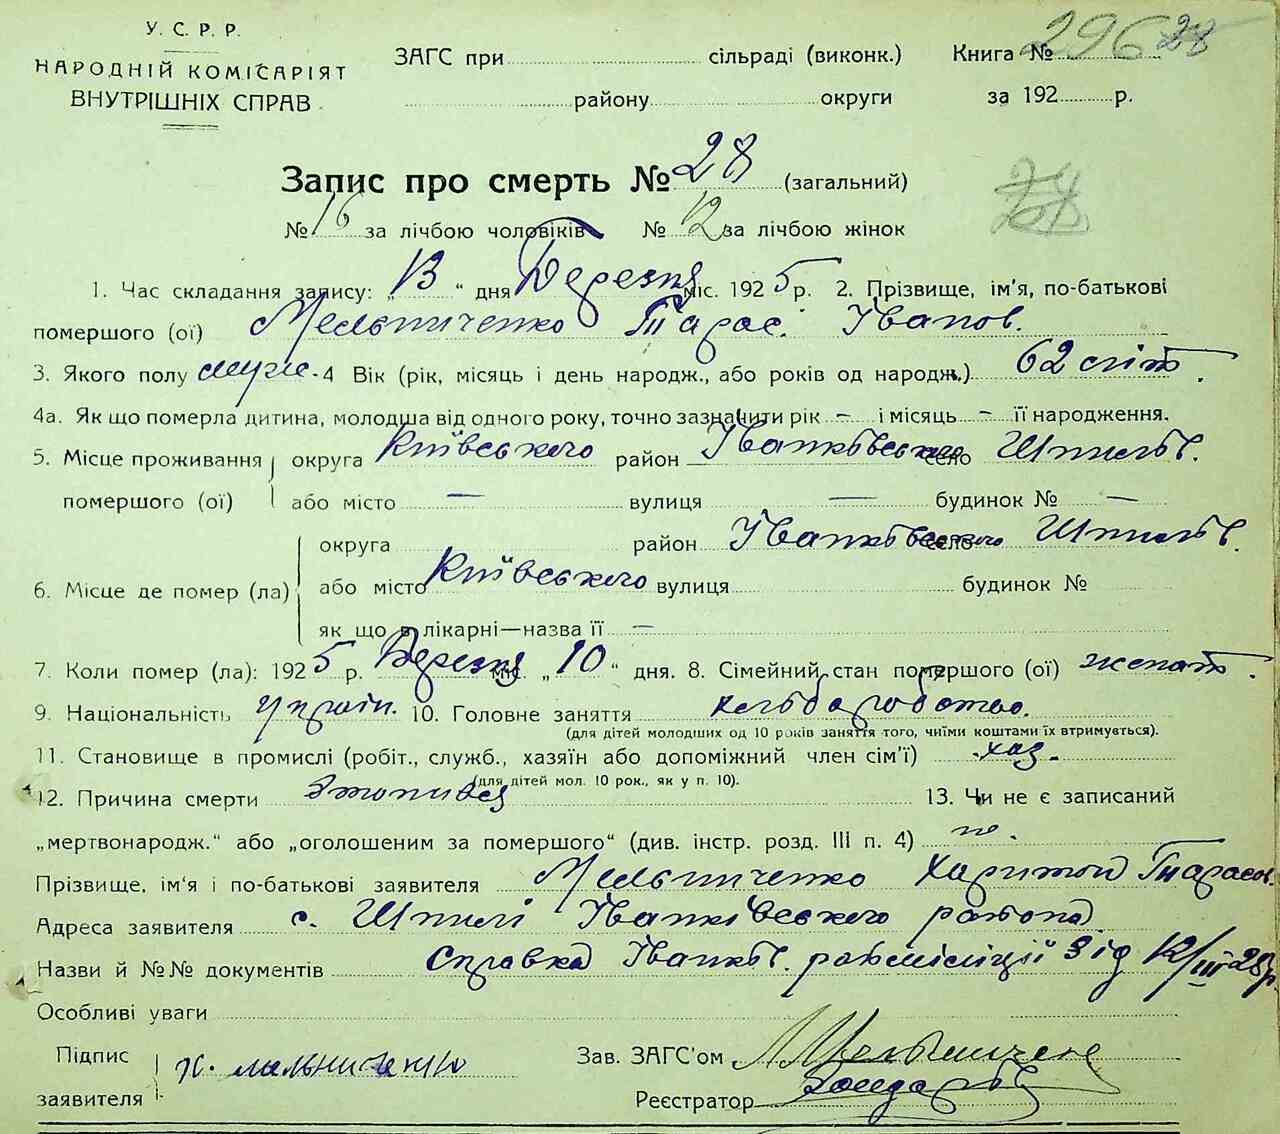 У. С. Р. Р.
НАРОДНІЙ КОМІСАРІЯТ
ВНУТРІШНІХ СПРАВ
ЗАГС при сільраді (виконк.)
району округи
Книга № 296 28
за 192 р.
Запис про смерть № 28 (загальний)
№ 16 за лічбою чоловіків № 12 за лічбою жінок
1. Час складання запису: „13“ дня Березня міс. 1925 р. 2. Прізвище, ім'я, по-батькові
помершого (ої) Мельниченко Тарас Іванов.
3. Якого полу муж. 4 Вік (рік, місяць і день народж., або років од народж.) 62 літ.
4а. Як що померла дитина, молодша від одного року, точно зазначити рік — і місяць — її народження.
5. Місце проживання помершого (ої) округа Київського район Іванківського село Шпилів.
або місто — вулиця — будинок № —
6. Місце де помер (ла) округа район Іванківського село Шпилів.
або місто Київського вулиця будинок №
як що в лікарні—назва її —
7. Коли помер (ла): 1925 р. Березня міс. „10“ дня. 8. Сімейний стан помершого (ої) женат.
9. Національність україн. 10. Головне заняття хліборобство.
(для дітей молодших од 10 років заняття того, чиїми коштами їх втримується).
11. Становище в промислі (робіт., служб., хазяїн або допоміжний член сім'ї) хаз.
(для дітей мол. 10 рок., як у п. 10).
12. Причина смерти Втопився 13. Чи не є записаний
„мертвонародж.“ або „оголошеним за помершого“ (див. інстр. розд. III п. 4)
Прізвище, ім'я і по-батькові заявителя Мельниченко Харитон Тарасов.
Адреса заявителя с. Шпилі Іванківського района
Назви й №№ документів Справка Іванків. райміліції від 12/III 25 р.
Особливі уваги
Підпис заявителя Х. Мельниченко
Зав. ЗАГС'ом Мельниченко
Реєстратор